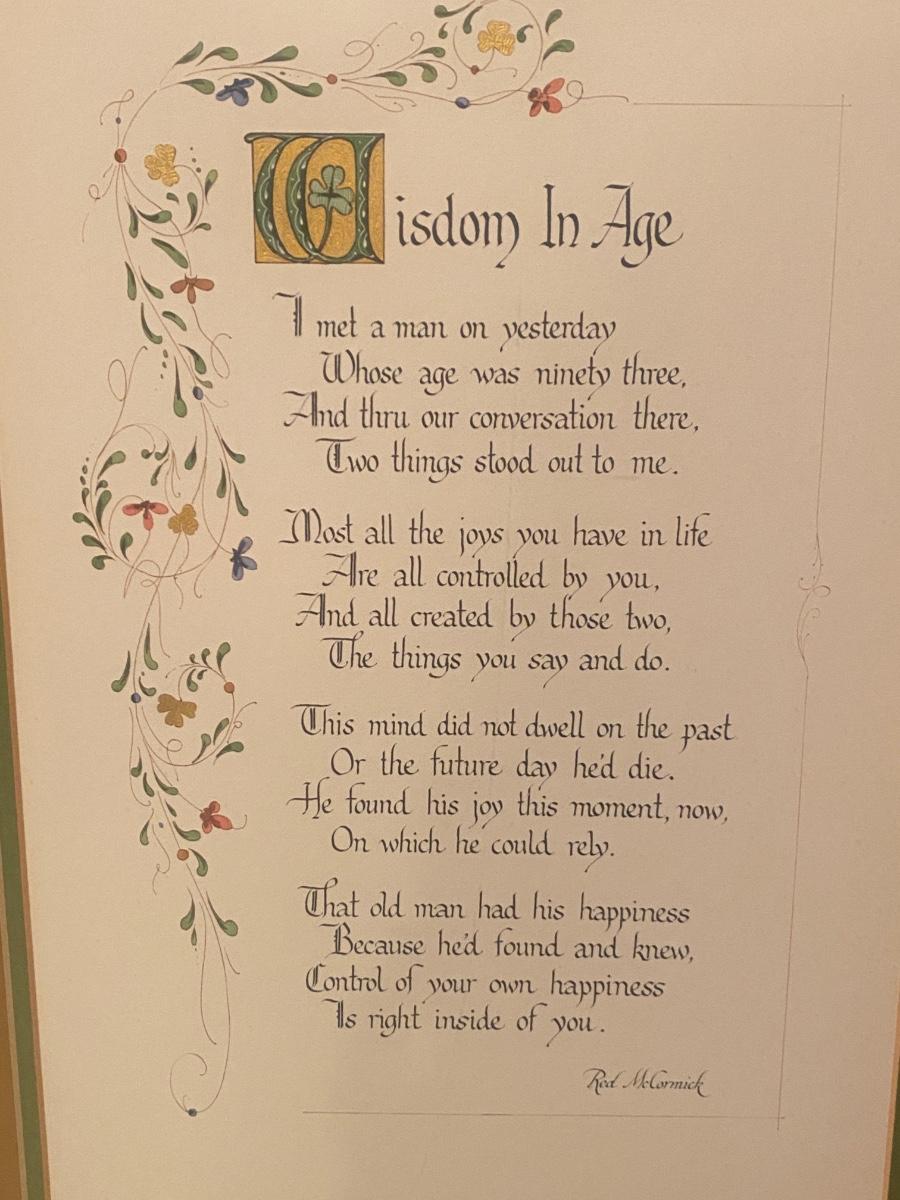 Wisdom In Age
I met a man on yesterday
Whose age was ninety three,
And thru our conversation there,
Two things stood out to me.
Most all the joys you have in life
Are all controlled by you,
And all created by those two,
The things you say and do.
This mind did not dwell on the past
Or the future day he'd die.
He found his joy this moment, now,
On which he could rely.
That old man had his happiness
Because he'd found and knew,
Control of your own happiness
Is right inside of you.
Red McCormick